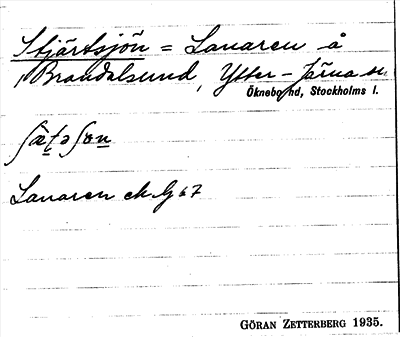 Stjärtsjön = Lanaren å
Brandalsund, Ytter-Järna sn.
Öknebo hd, Stockholms l.
Lanaren ek. G 67
GÖRAN ZETTERBERG 1935.